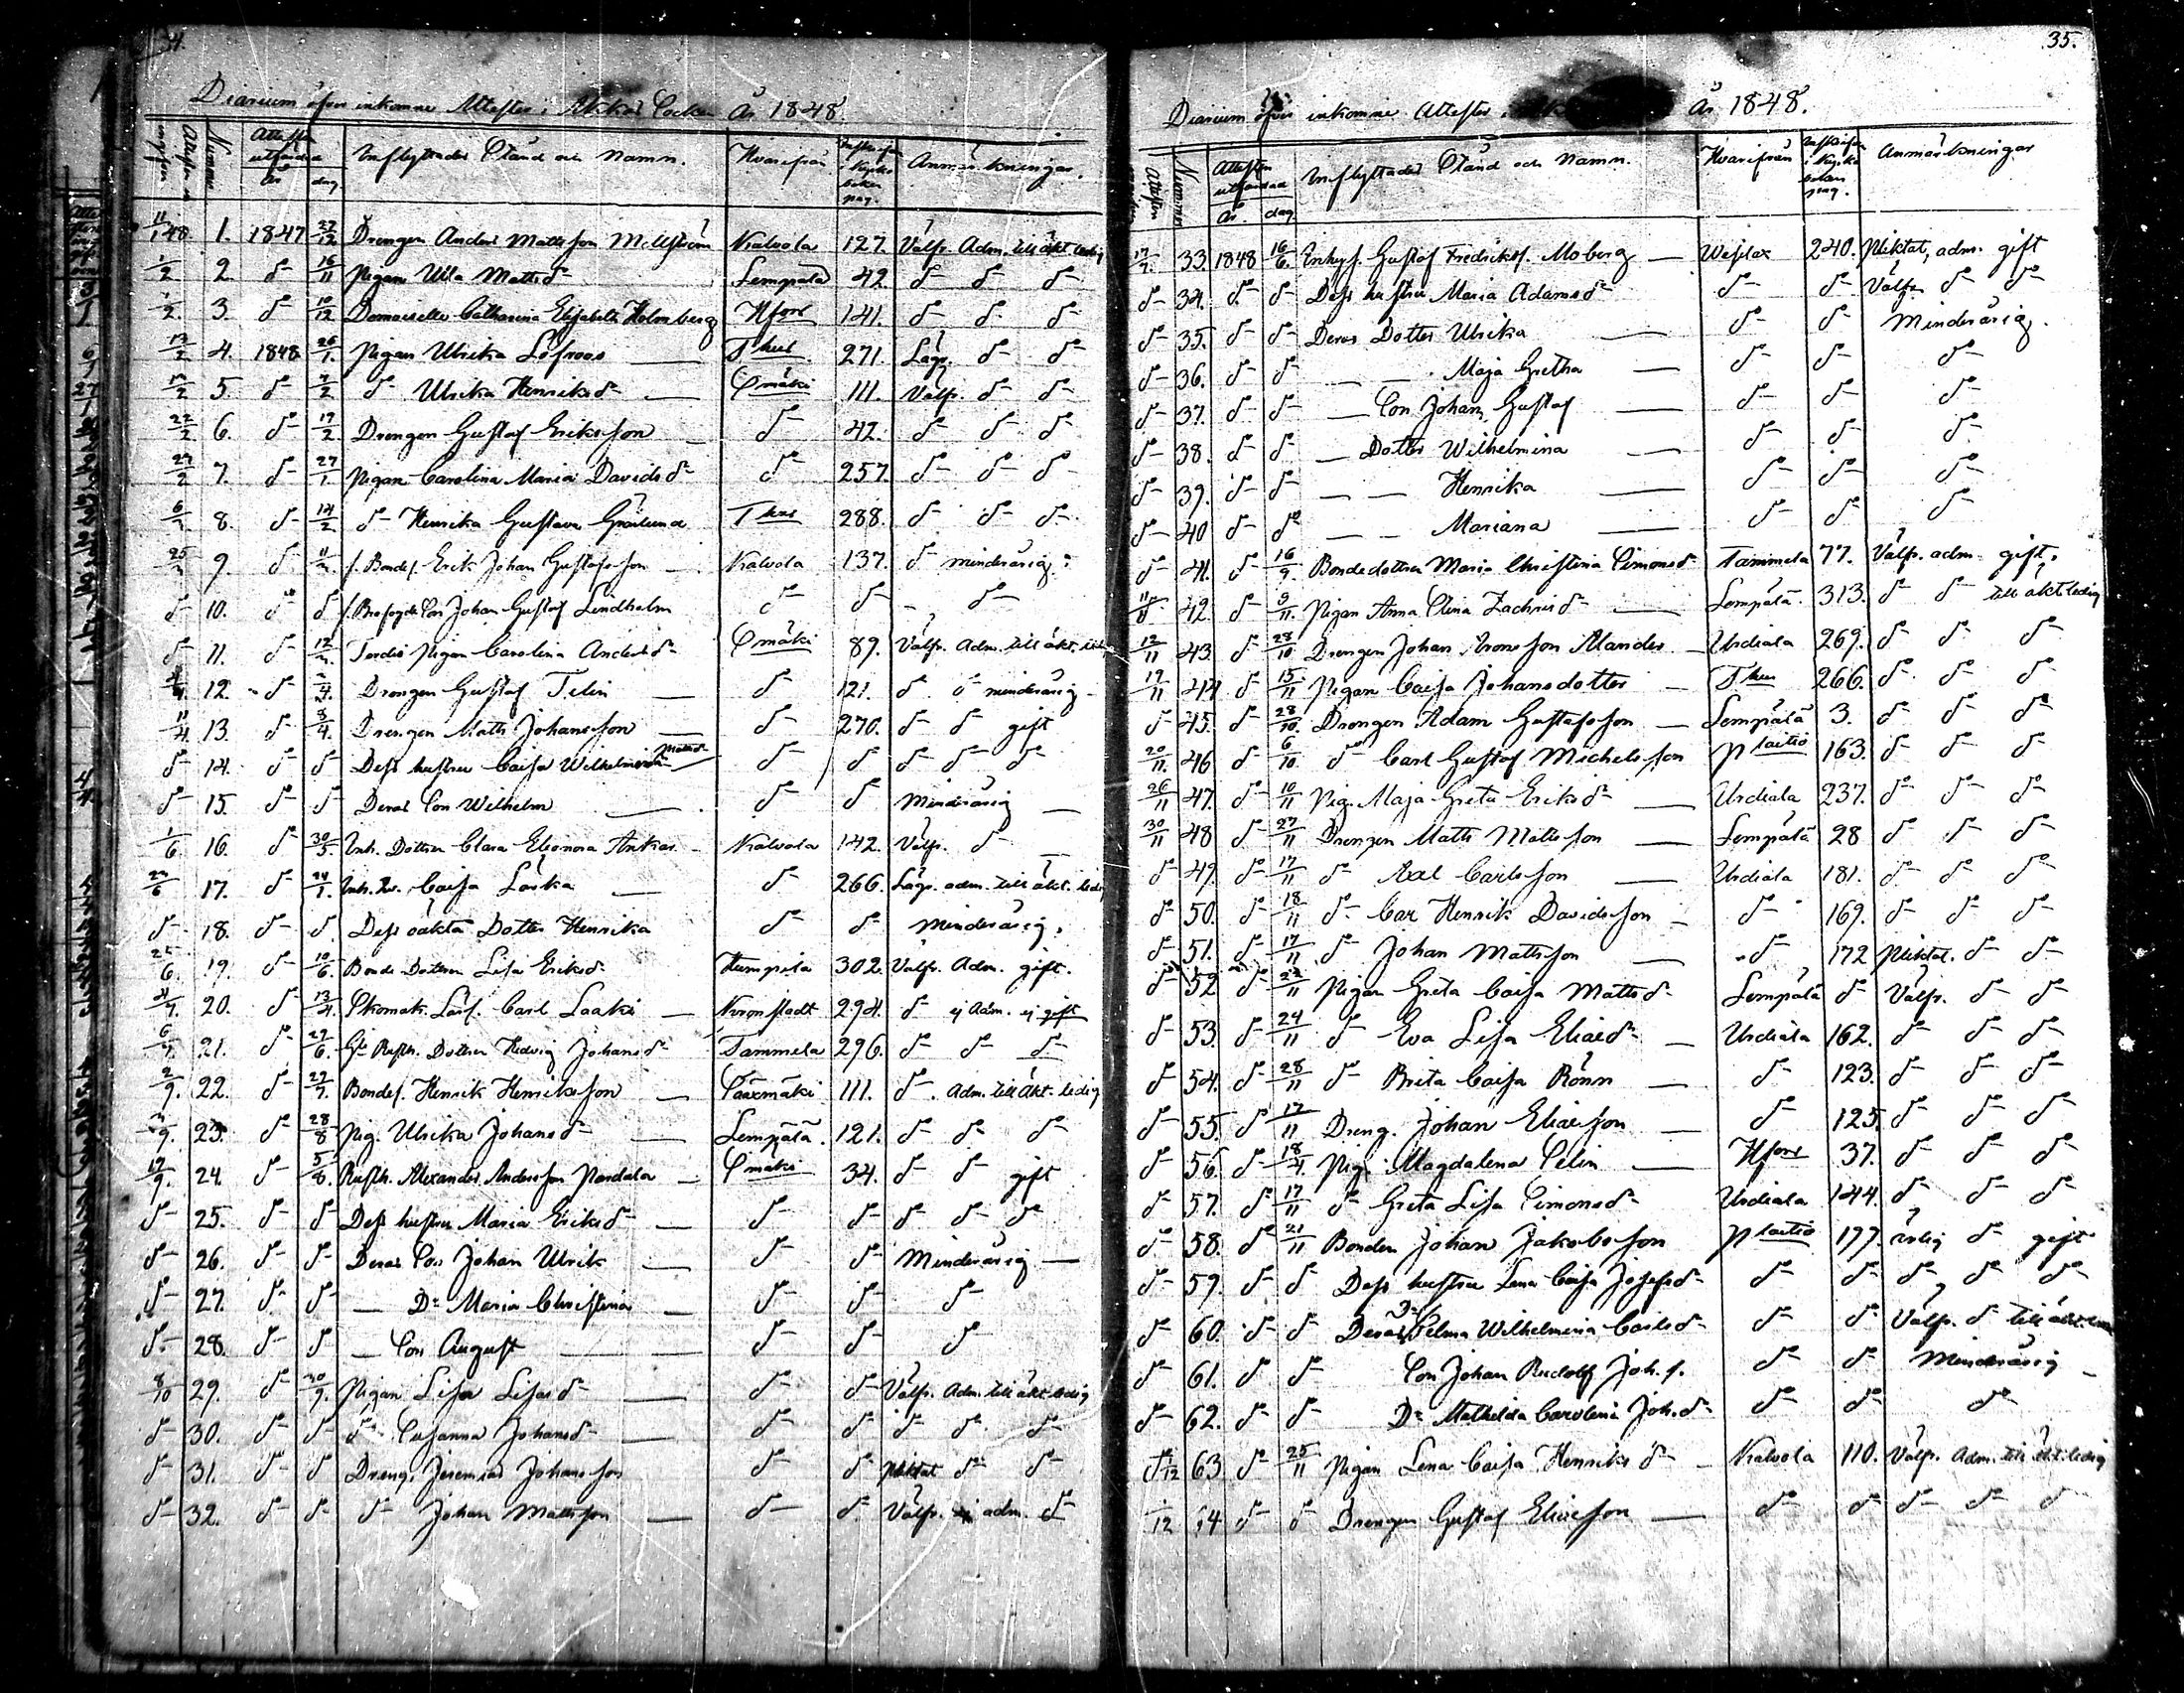 34.
Diarium öfver inkomne Attester i Akkas Socken År 1848.
Attesten Nummer Attesten utfärdad År dag. Inflyttades Stånd och Namn. Hvarifrån Kyrko boken pag. Anmärkningar.
11/1 48. 1. 1847 27/12 Drengen Anders Mattsson Mellström Kalvola 127. Välfr. Adm. till äkt. ledig
1/2 2 d:o 16/11 Pigan Ulla Mattsd:r Lempälä 42. d:o d:o d:o
1/2 3. d:o 10/12 Demoiselle Catharina Elisabeth Holmberg Hfors 141. d:o d:o d:o
13/2 4. 1848 26/1. Pigan Ulrika Löfroos T hus 271. Lägr. d:o d:o
5. d:o 4/2 d:o Ulrika Henriksd:r Smäki 111. Välfr. d:o d:o
22/2 6. d:o 17/2 Drengen Gustaf Eriksson d:o 42. d:o d:o d:o
27/2 7. d:o 27/1 Pigan Carolina Maria Davidsd:r d:o 257. d:o d:o d:o
8. d:o 14/2 d:o Henrika Gustava Grönlund T hus 288. d:o d:o d:o
9. d:o f. Bondes. Erik Johan Gustafsson Kalvola 137. d:o minderårig
d:o 10. d:o d:o Son Johan Gustaf Lindholm d:o d:o d:o
d:o 11. d:o Pigan Carolina Andersd:r Smäki 89. Välfr. Adm. till äkt. ledig
12. d:o Drengen Gustaf Telin d:o 121. d:o d:o minderårig
11/4 13. d:o 8/4. Drengen Matts Johansson d:o 270. d:o d:o gift
d:o 14. d:o d:o Dess hustru Caisa Wilhelmina Mattsd:r d:o d:o d:o d:o d:o
d:o 15. d:o d:o Deras Son Wilhelm d:o d:o Minderårig
1/6 16. d:o 30/5. Inh. Dottren Clara Eleonora Ankar Kalvola 142. Välfr. d:o
17. d:o 24/1. Caisa Laska d:o 266. Lägr. adm. till äkt. ledig
d:o 18. d:o d:o Dess oäkta Dotter Henrika d:o d:o Minderårig.
25/6. 19. d:o 10/6. Bonde Dottren Lisa Eriksd:r Humpila 302. Välfr. Adm. gift.
20. d:o 13/4 Skomak. Lärl. Carl Laaki Kronstadt 294. d:o ej Adm. ej gift
21. d:o 27/6. Dottren Hedvig Johansd:r Tammela 296. d:o d:o d:o
2/9. 22. d:o 27/7. Bondes. Henrik Henriksson Sääxmäki 111. d:o Adm. till äkt. ledig
23. d:o 28/8 Pig. Ulrika Johansd:r Lempälä 121. d:o d:o d:o
17/9. 24. d:o 5/8. Rusth. Alexander Andersson Pardala Smäki 34. d:o d:o gift
d:o 25. d:o d:o Dess hustru Maria Eriksd:r d:o d:o d:o d:o d:o
d:o 26. d:o d:o Deras Son Johan Ulrik d:o d:o Minderårig
d:o 27. d:o d:o — D:r Maria Christina d:o d:o d:o
d:o 28. d:o d:o — Son August d:o d:o d:o
8/10 29. d:o 30/9. Pigan Lisa Lisasd:r d:o d:o Välfr. Adm. till äkt. ledig
d:o 30. d:o d:o d:o Susanna Johansd:r d:o d:o d:o d:o d:o
d:o 31. d:o d:o Dreng. Jeremias Johansson d:o d:o Pliktat d:o d:o
d:o 32. d:o d:o d:o Johan Mattsson d:o d:o Välfr. adm. d:o
35.
Diarium öfver inkomne Attester År 1848.
Attesten Nummer Attesten utfärdad År. dag Inflyttades Stånd och Namn. Hvarifrån Kyrko boken pag. Anmärkningar
17/7. 33. 1848 16/6. Gustaf Fredriks. Moberg Westlax 240. Pliktat, adm. gift
d:o 34. d:o d:o Dess hustru Maria Adamsd:r d:o d:o Välfr. d:o d:o
d:o 35. d:o d:o Deras Dotter Ulrika d:o d:o Minderårig.
d:o 36. d:o d:o — — Maja Gretha d:o d:o d:o
d:o 37. d:o d:o — Son Johan Gustaf d:o d:o d:o
d:o 38. d:o d:o — Dotter Wilhelmina d:o d:o d:o
d:o 39. d:o d:o — — Henrika d:o d:o d:o
d:o 40 d:o d:o — — Mariana d:o d:o d:o
d:o 41. d:o 16/9. Bondedottren Maria Christina Simonsd:r Tammela 77. Välfr. adm. gift.
42. d:o 9/11. Pigan Anna Stina Zachrisd:r Lempälä 313. d:o d:o till äkt ledig
12/11 43 d:o 28/10 Drengen Johan Aronsson Alander Urdiala 269. d:o d:o d:o
17/11 44 d:o 15/11 Pigan Caisa Johansdotter T hus 266. d:o d:o d:o
d:o 45. d:o 28/10. Drengen Adam Gustafsson Lempälä 3. d:o d:o d:o
20/11. 46 d:o 6/10. d:o Carl Gustaf Michelsson P laitio 163. d:o d:o d:o
26/11 47. d:o 10/11 Pig. Maja Greta Eriksd:r Urdiala 237. d:o d:o d:o
30/11 48 d:o 27/11 Drengen Matts Mattsson Lempälä 28 d:o d:o d:o
d:o 49. d:o 17/11 d:o Axel Carlsson Urdiala 181. d:o d:o d:o
d:o 50. d:o 18/11 d:o Car Henrik Davidsson d:o 169. d:o d:o d:o
d:o 51. d:o 17/11 d:o Johan Mattsson d:o 172 Pliktat. d:o d:o
d:o 52 d:o 22/11 Pigan Greta Caisa Mattsd:r Lempälä d:o Välfr. d:o d:o
d:o 53. d:o 24/11 d:o Eva Lisa Eliasd:r Urdiala 162. d:o d:o d:o
d:o 54. d:o 28/11 d:o Brita Caisa Rönn d:o 123. d:o d:o d:o
d:o 55. d:o 17/11 Dreng. Johan Eliasson d:o 125. d:o d:o d:o
d:o 56. d:o 18/4. Pig. Magdalena Selin Hfors 37. d:o d:o d:o
d:o 57. d:o 17/11 d:o Greta Lisa Simonsd:r Urdiala 144. d:o d:o d:o
d:o 58. d:o 21/11 Bonden Johan Jakobsson P laitio 177. ärlig d:o gift
d:o 59. d:o d:o Dess hustru Lena Caisa Josefsd:r d:o d:o d:o d:o d:o
d:o 60. d:o d:o Deras D:r Selma Wilhelmina Carlsd:r d:o d:o Välfr. d:o till äkt.
d:o 61. d:o d:o Son Johan Rudolf Joh. s. d:o d:o Minderårig
d:o 62. d:o d:o D:r Mathilda Carolina Joh.d:r d:o d:o d:o
63 d:o 25/11 Pigan Lena Caisa Henriksd:r Kalvola 110. Välfr. Adm. till äkt. ledig
64 d:o d:o Drengen Gustaf Eliasson d:o d:o d:o d:o d:o